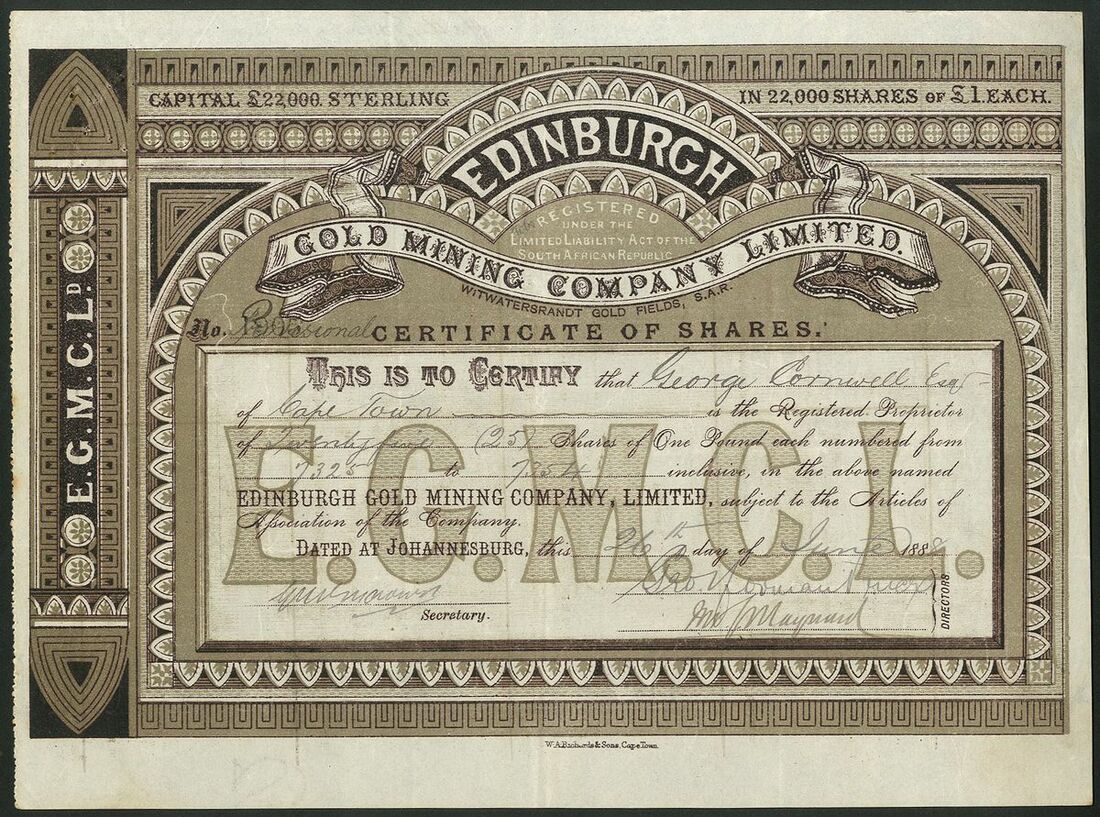 CAPITAL £22,000. STERLING IN 22,000 SHARES OF £1. EACH.
EDINBURGH
REGISTERED
UNDER THE
LIMITED LIABILITY ACT OF THE
SOUTH AFRICAN REPUBLIC
GOLD MINING COMPANY LIMITED.
WITWATERSRANDT GOLD FIELDS, S.A.R.
No. Provisional CERTIFICATE OF SHARES.
THIS IS TO CERTIFY that George Cornwell Esqr
of Cape Town is the Registered Proprietor
of Twenty five (25) Shares of One Pound each numbered from
to inclusive, in the above named
EDINBURGH GOLD MINING COMPANY, LIMITED, subject to the Articles of
Association of the Company.
DATED AT JOHANNESBURG, this 26th day of June 1888
Secretary.
Maynard
DIRECTORS
E.G.M.C.L.
E.G.M.C.LD
W.A.Richards & Sons, Cape Town.